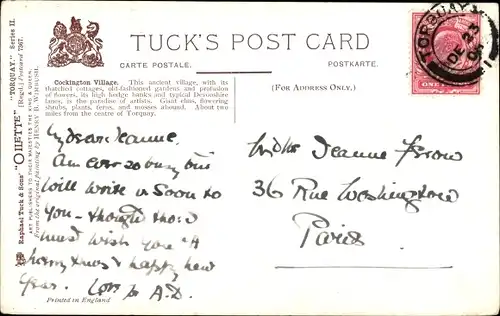 TUCK'S POST CARD
CARTE POSTALE.
POSTKARTE.
(FOR ADDRESS ONLY.)
TORQUAY
DE 23
05
Raphael Tuck & Sons' "OILETTE" [Regd.] Postcard 7367.
"TORQUAY" Series II.
ART PUBLISHERS TO THEIR MAJESTIES THE KING & QUEEN.
From the original painting by HENRY B. WIMBUSH.
Cockington Village. This ancient village, with its
thatched cottages, old-fashioned gardens and profusion
of flowers, its high hedge banks and typical Devonshire
lanes, is the paradise of artists. Giant elms, flowering
shrubs, plants, ferns, and mosses abound. About two
miles from the centre of Torquay.
My dear Jeanne.
Am ever so busy but
will write you soon to
you - thought I
must wish you "A
happy Xmas & happy new
Year. Love A.D.
Printed in England
Jeanne
36 Rue Washington
Paris